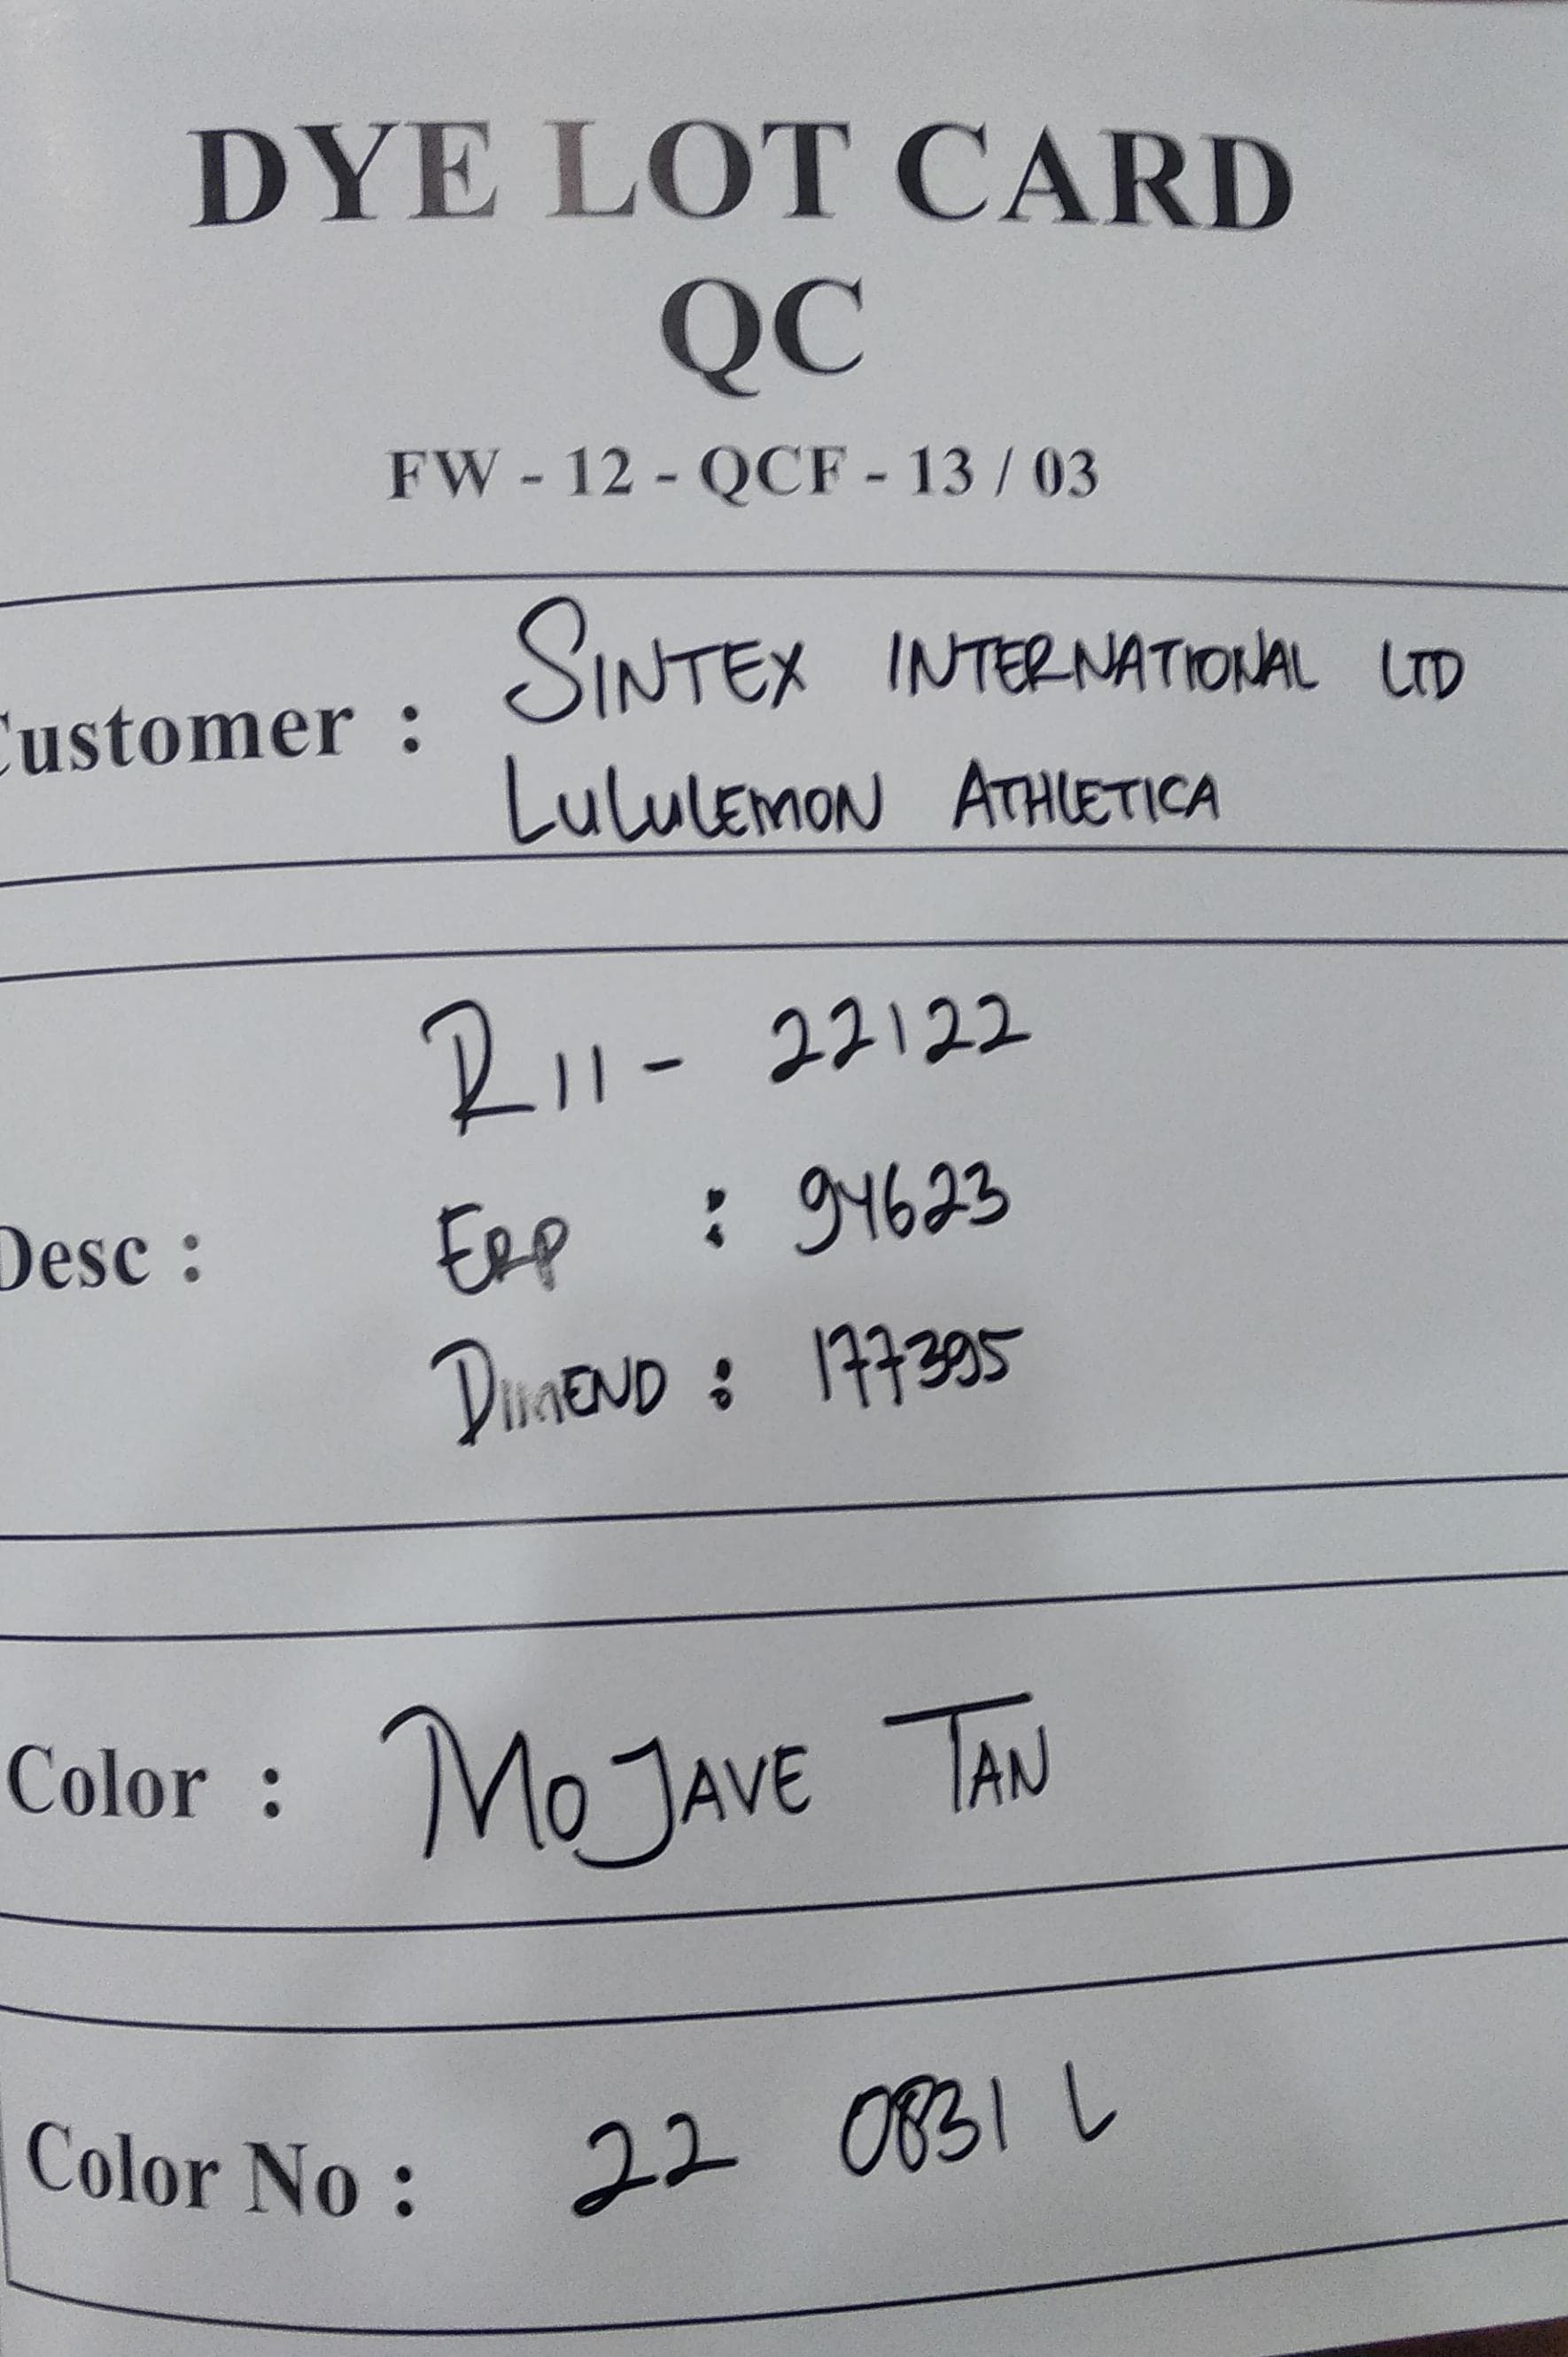 DYE LOT CARD
QC
FW - 12 - QCF - 13 / 03
Customer : SINTEX INTERNATIONAL LTD
LULULEMON ATHLETICA
R11 - 22122
Desc : ERP : 94623
DIMEND : 177395
Color : MOJAVE TAN
Color No : 22 0831 L